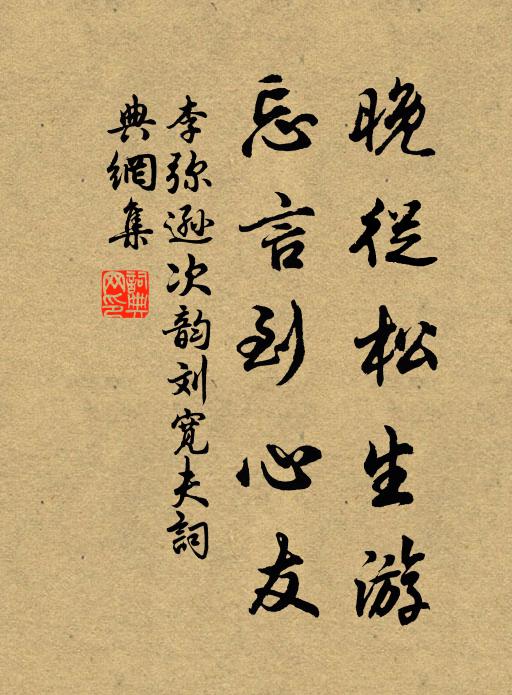 晚從松生游
忘言到心友
李弥遜次韵刘寬夫詞
典網集
詞典网印